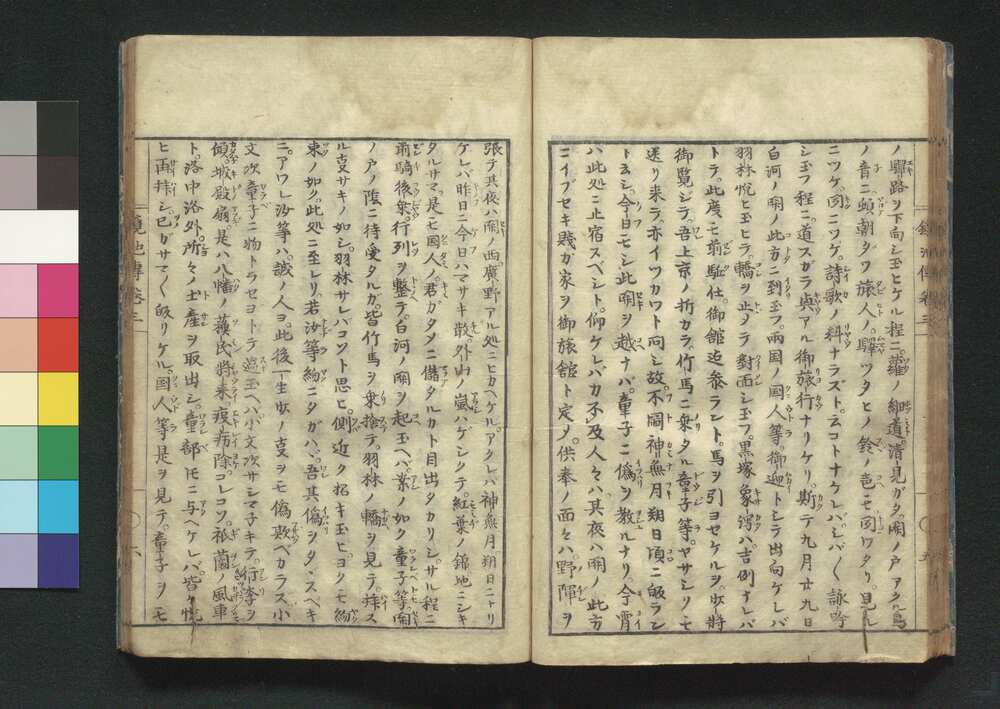 ノ驛路ヲ下向シ玉ヒケル程ニ蘿ノ細道清見ガタ関ノ戸アクル鳥
ノ音ニ頭朝タツ旅人ノ驛ツタヒノ鈴ノ音モ向ワタリ見ル
ニツケ向ニツケ詩歌ノ料ナラズト云コトナケレバシバ〱詠吟
シ玉フ程ニ道スガラ與アル御旅行ナリケリ斯テ九月廿九日
白河ノ関ノ此方ニ到玉フ両国ノ国人等御迎トシテ出向ケレバ
羽林悦ヒ玉ヒテ轎ヲ止メテ對面シ玉フ黒塚象潟ハ吉例ナレバ
トテ此度モ前駈仕御舘迄参ラント馬ヲ引ヨセケルヲ少将
御覧ジテ吾上京ノ折カラ竹馬ニ乗タル童子等ヤサシクモ
送リ来テ亦イツカワト向シ故不圖神無月朔日頃ニ皈ラン
ト云シ今日モシ此関ヲ越ナバ童子ニ偽ヲ教ルナリ今霄
ハ此処ニ止宿スベシト仰ケレバカ不及人々ハ其夜ハ関ノ此方
ニイブセキ賎ガ家ヲ御旅舘ト定メ供奉ノ面々ハ野陣ヲ
張テ其夜ハ関ノ西廣野アル処ニヒカヘケルアクレバ神無月朔日ニナリ
ケレバ昨日ニ今日ハマサキ散外山ノ嵐ハゲシクテ紅葉ノ錦地ニシキ
タルサマハ是モ國人ノ君ガタメニ儲タルカト目出タカリシサル程ニ
前騎後乗行列ヲ整テ白河ノ関ヲ起玉ヘバ案ノ如ク童子等関
ノ戸ノ陰ニ待受タルガ皆竹馬ヲ乗捨テ羽林ノ轎ヲ見テ拜ス
ル叓サキノ如シ羽林サレバコソト思ヒ側近ク招キ玉ヒヨクモ約
束ノ如ク此処ニ至レリ若汝等約ニタガハヾ吾其偽ヲタヾスベキ
ニアワレ汝等ハ誠ノ人ヨ此後一生少ノ叓ヲモ偽欺ベカラズ小
文次童子ニ物トラセヨトテ過玉ヘバ小文次サシマ子キテ行李ヲ
傾ケ城殿扇是ハ八幡ノ蘓民將来疫病除コレゾ祇薗ノ風車
ト洛中洛外所々ノ土産ヲ取出シ童部トモニ与ヘケレバ皆々悦
ヒ再拜シ已ガサマ〱皈リケル国人等是ヲ見テ童子ヲモ